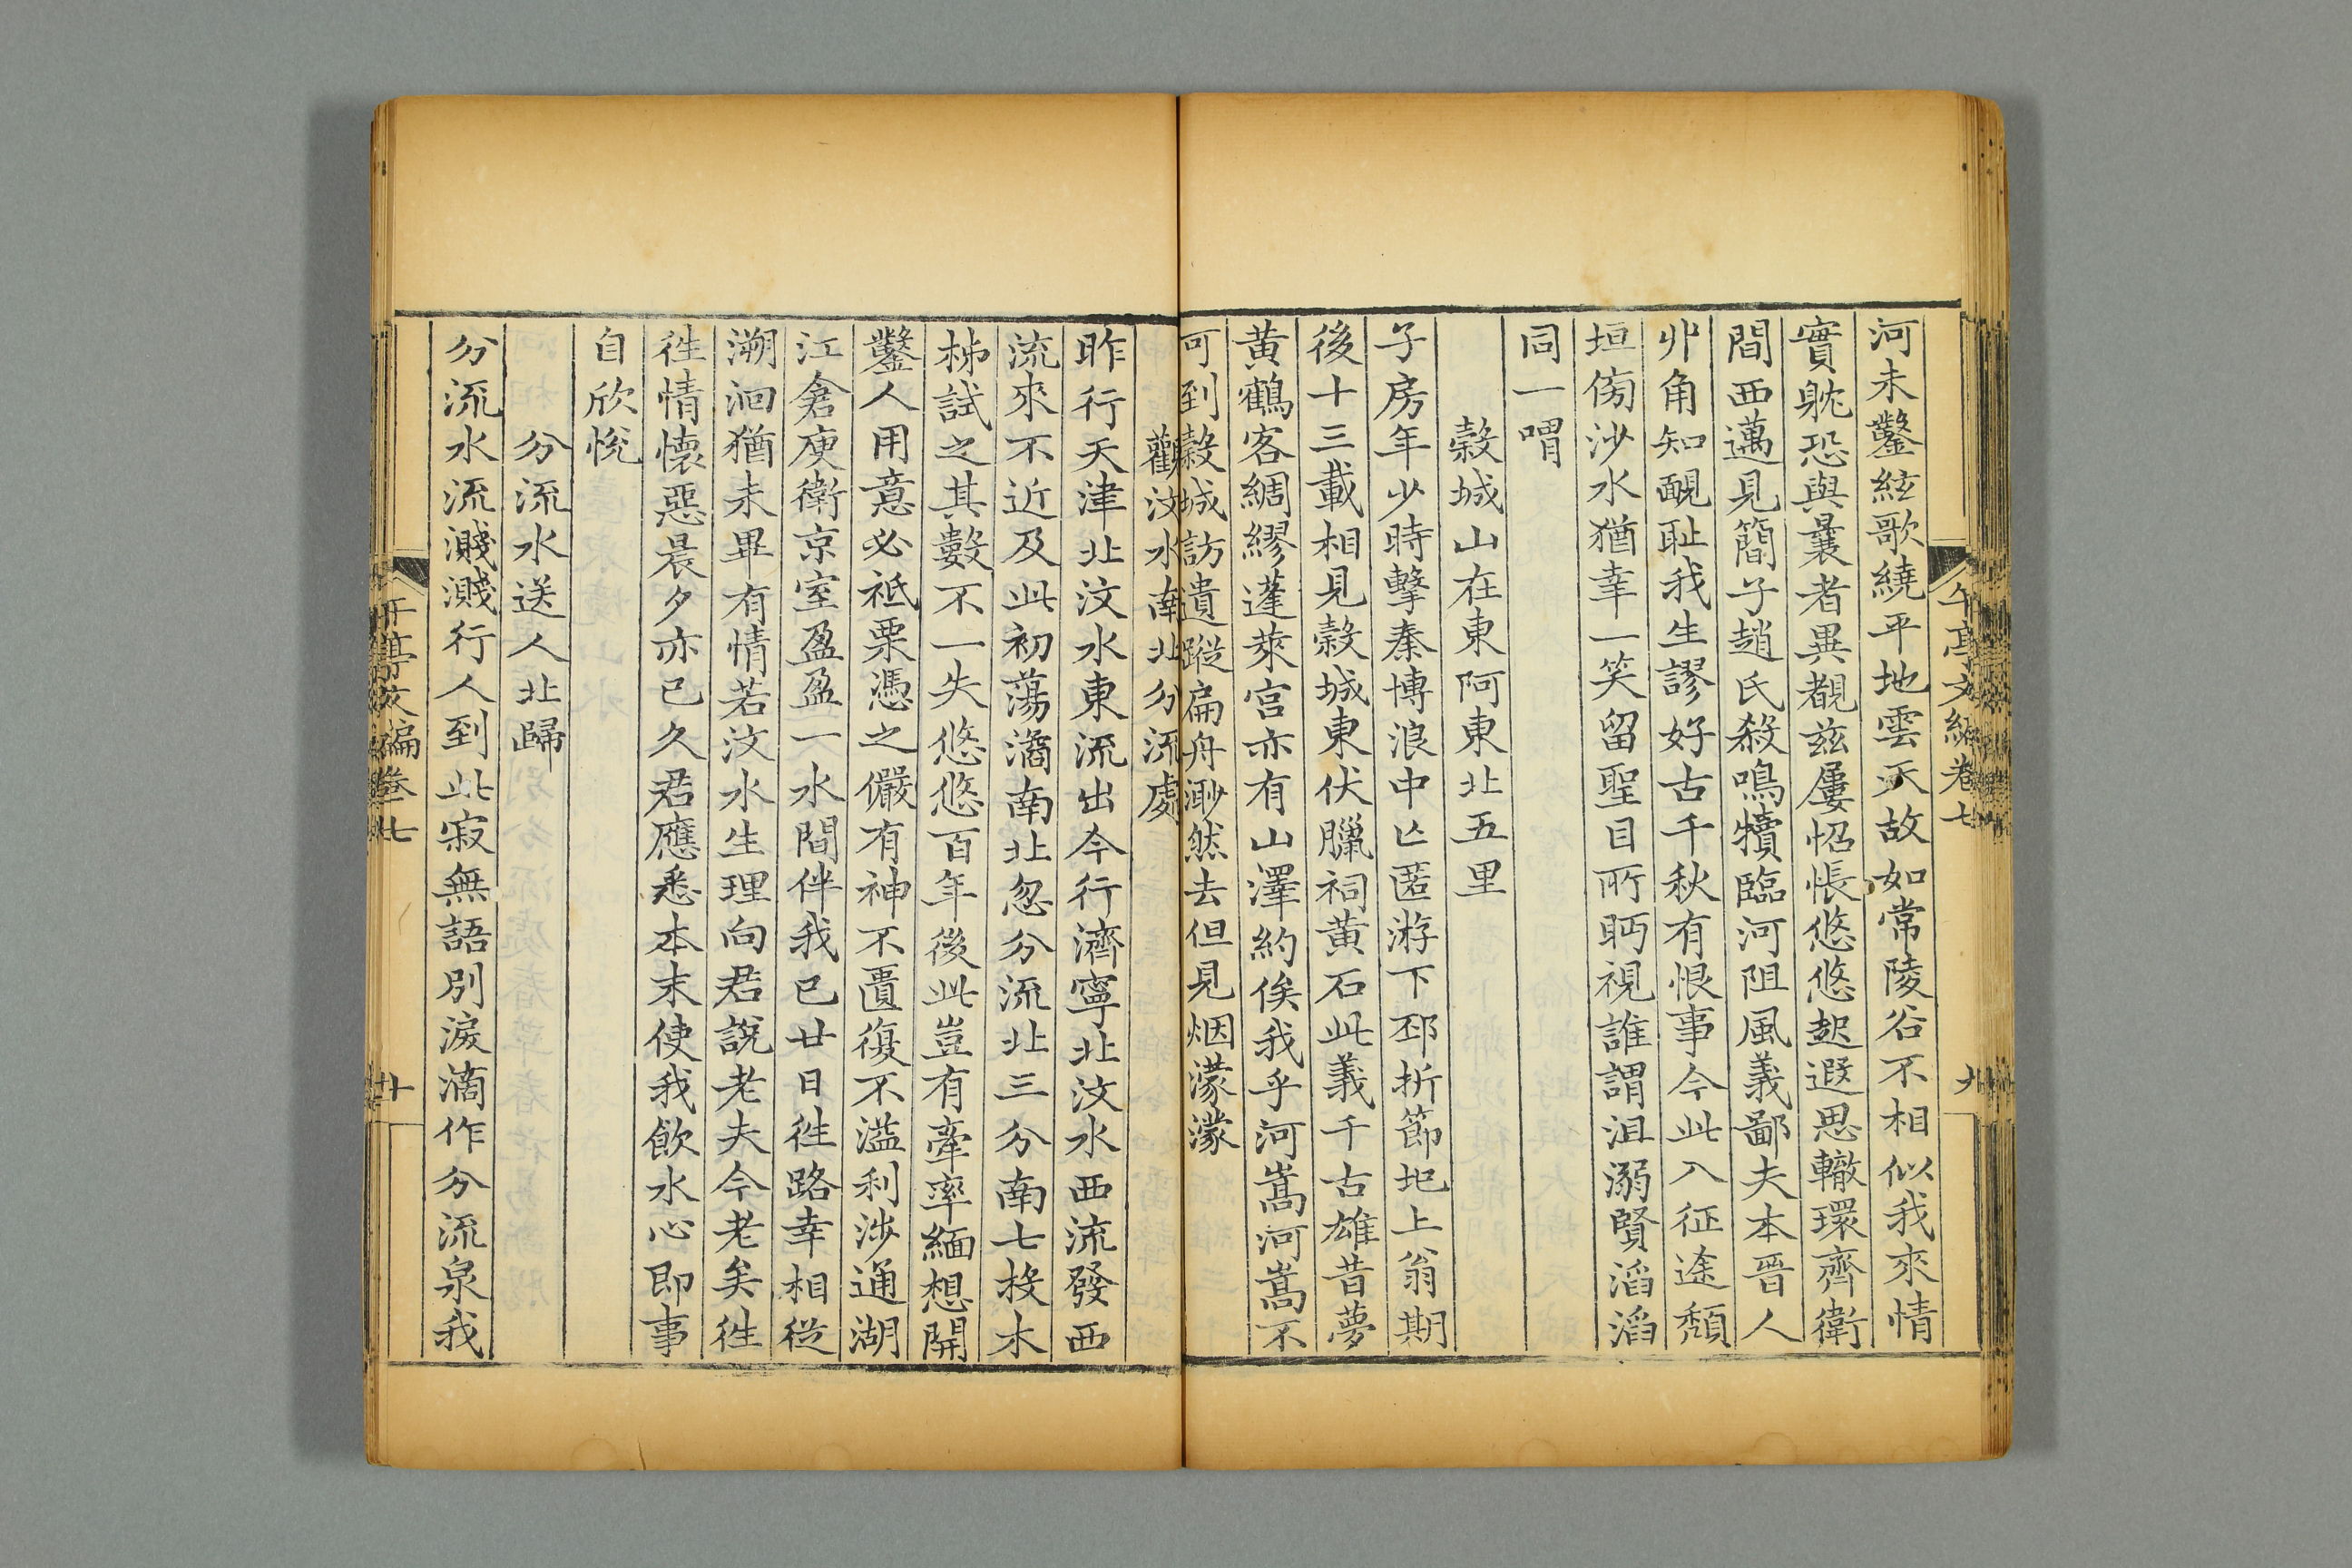 午亭文編卷七
九
河未鑿絃歌繞平地雲天故如常陵谷不相似我來情
實躭恐與曩者異覩茲屢怊悵悠悠起遐思轍環齊衛
間西邁見簡子趙氏殺鳴犢臨河阻風義鄙夫本晉人
丱角知靦耻我生謬好古千秋有恨事今此入征途頽
垣傍沙水猶幸一笑留聖目所眄視誰謂沮溺賢滔滔
同一喟
穀城山在東阿東北五里
子房年少時擊秦博浪中亡匿游下邳折節圯上翁期
後十三載相見穀城東伏臘祠黃石此義千古雄昔夢
黃鶴客綢繆蓬萊宮亦有山澤約俟我乎河嵩河嵩不
可到穀城訪遺蹤扁舟渺然去但見烟濛濛
觀汶水南北分流處
昨行天津北汶水東流出今行濟寧北汶水西流發西
流來不近及此初蕩潏南北忽分流北三分南七投木
柹試之其數不一失悠悠百年後此豈有牽率緬想開
鑿人用意必祗栗憑之儼有神不匱復不溢利涉通湖
江倉庾衛京室盈盈一水間伴我已廿日徃路幸相從
溯洄猶未畢有情若汶水生理向君說老夫今老矣徃
徃情懷惡晨夕亦已久君應悉本末使我飲水心即事
自欣悅
分流水送人北歸
分流水流濺濺行人到此寂無語別淚滴作分流泉我
午亭文編卷七
廿